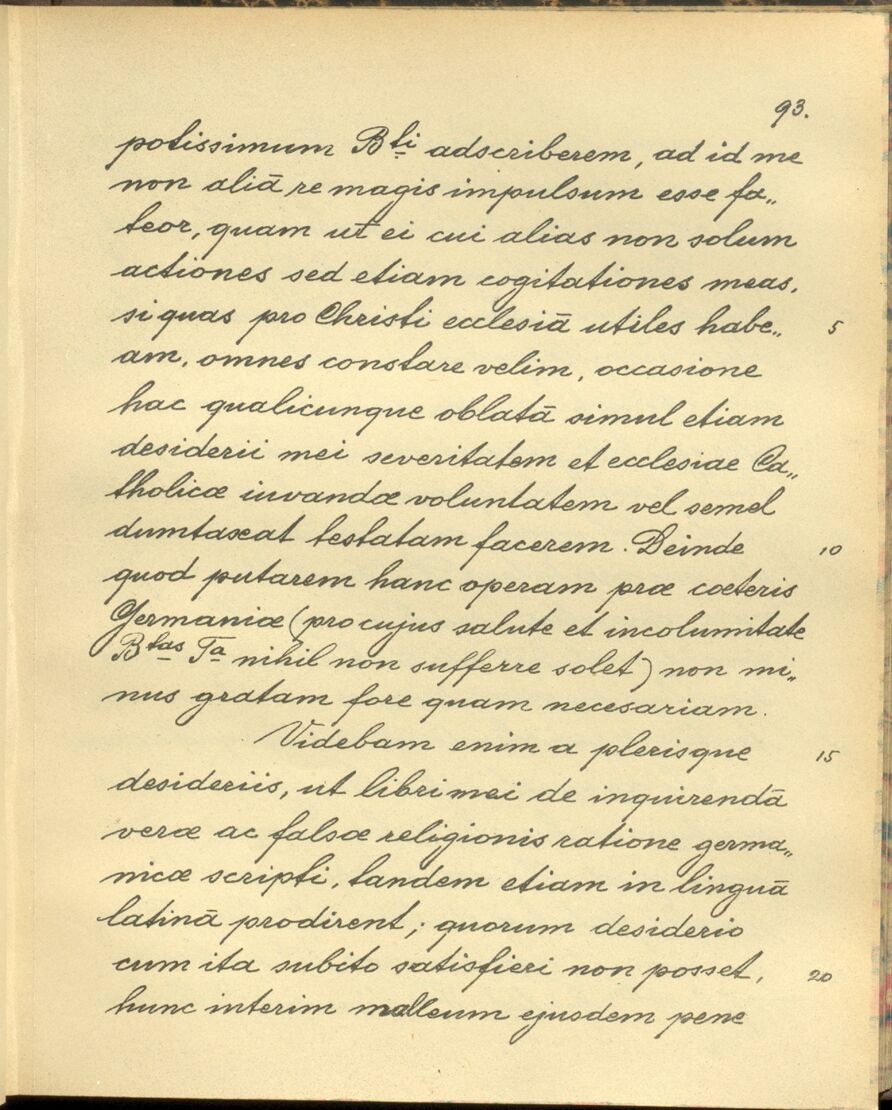 93.
potissimum Bti adscriberem, ad id me
non aliā re magis impulsum esse fa„
teor, quam ut ei cui alias non solum
actiones sed etiam cogitationes meas,
si quas pro Christi ecclesiā utiles habe„ 5
am, omnes constare velim, occasione
hac qualicunque oblatā simul etiam
desiderii mei severitatem et ecclesiae Ca„
tholicæ iuvandæ voluntatem vel semel
dumtaxat testatam facerem. Deinde 10
quod putarem hanc operam præ cœteris
Germaniæ (pro cujus salute et incolumitate
Btas Ta nihil non sufferre solet) non mi„
nus gratam fore quam necesariam.
Videbam enim a plerisque 15
desideriis, ut libri mei de inquirendā
veræ ac falsæ religionis ratione germa„
nicæ scripti, tandem etiam in linguā
latinā prodirent; quorum desiderio
cum ita subito satisfieri non posset, 20
hunc interim malleum ejusdem pene